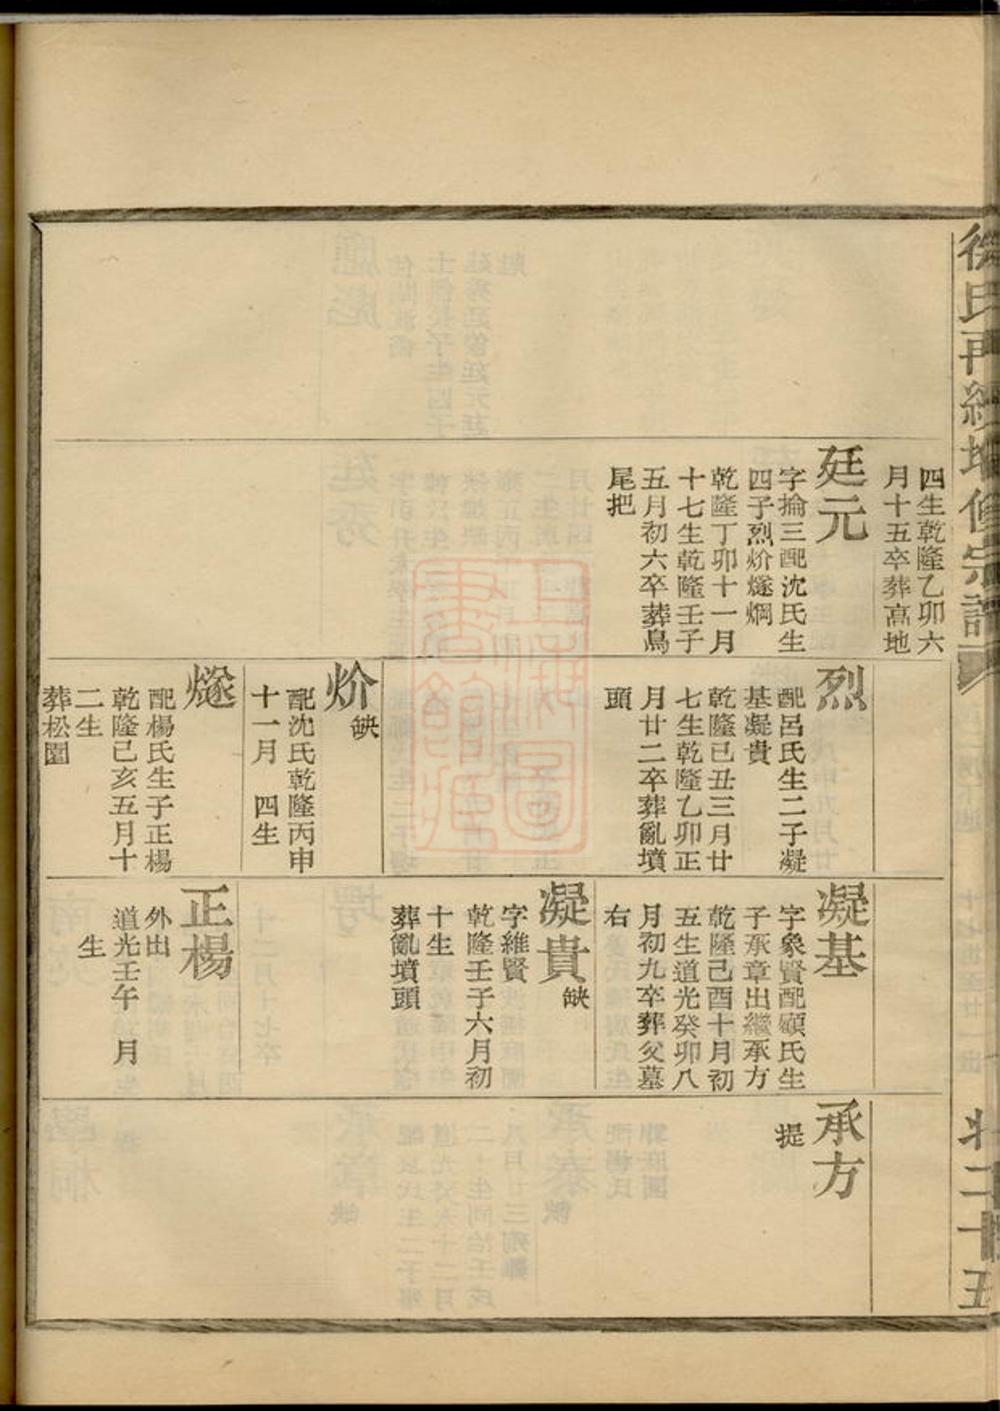 徐氏再續增修宗譜
四生乾隆乙卯六
月十五卒葬高地
廷元
字掄三配沈氏生
四子烈炌燧焵
乾隆丁卯十一月
十七生乾隆壬子
五月初六卒葬鳥
尾把
烈
配呂氏生二子凝
基凝貴
乾隆己丑三月廿
七生乾隆乙卯正
月廿二卒葬亂墳
頭
炌缺
配沈氏乾隆丙申
十一月 四生
燧
配楊氏生子正楊
乾隆己亥五月十
二生
葬松園
凝基
字象賢配顧氏生
子承章出繼承方
乾隆己酉十月初
五生道光癸卯八
月初九卒葬父墓
右
凝貴缺
字維賢
乾隆壬子六月初
十生
葬亂墳頭
正楊
外出
道光壬午 月
生
承方
提